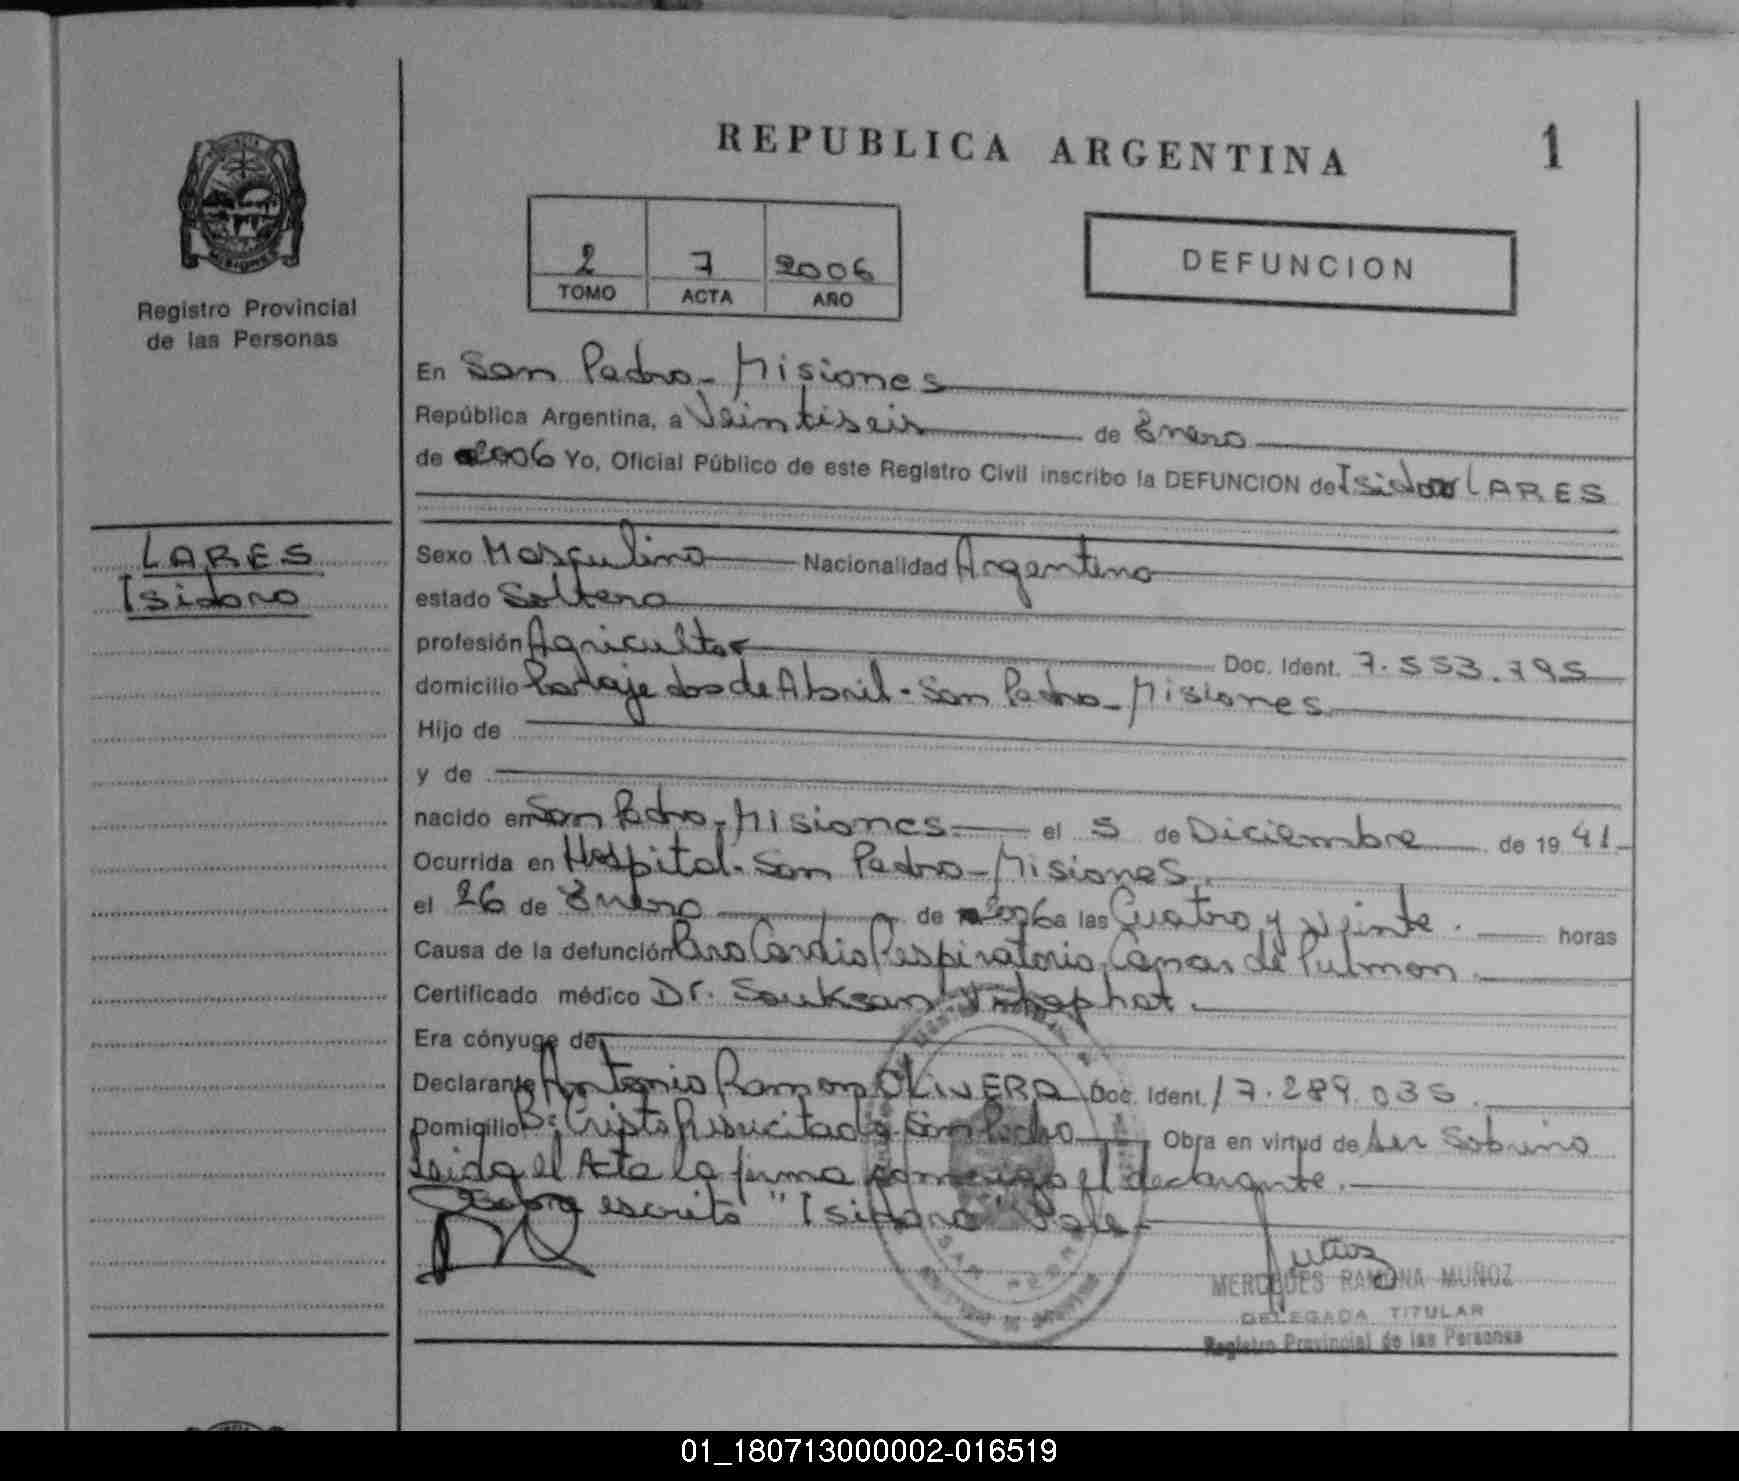 REPUBLICA ARGENTINA
1
MISIONES
Registro Provincial
de las Personas
2 7 2006
TOMO ACTA AÑO
DEFUNCION
En San Pedro - Misiones
República Argentina, a Veintiseis de Enero
de 2006 Yo, Oficial Público de este Registro Civil inscribo la DEFUNCION de Isidoro LARES
LARES
Isidoro
Sexo Masculino Nacionalidad Argentino
estado Soltero
profesión Agricultor Doc. Ident. 7.553.795
domicilio Paraje dos de Abril - San Pedro - Misiones
Hijo de
y de
nacido en San Pedro - Misiones el 5 de Diciembre de 1941
Ocurrida en Hospital - San Pedro - Misiones.
el 26 de Enero de 2006 a las Cuatro y veinte. horas
Causa de la defunción Paro Cardio Respiratorio, Cancer de Pulmon
Certificado médico Dr. Souksan
Era cónyuge de
Declarante Antonio Ramon OLIVERA Doc. Ident. 17.289.035
Domicilio B° Cristo Resucitado - San Pedro Obra en virtud de ser Sobrino
Leida el Acta la firma conmigo el declarante.
Sobre escrito "Isidoro" Vale
SAN PEDRO
MERCEDES RAMONA MUÑOZ
DELEGADA TITULAR
Registro Provincial de las Personas
01_180713000002-016519